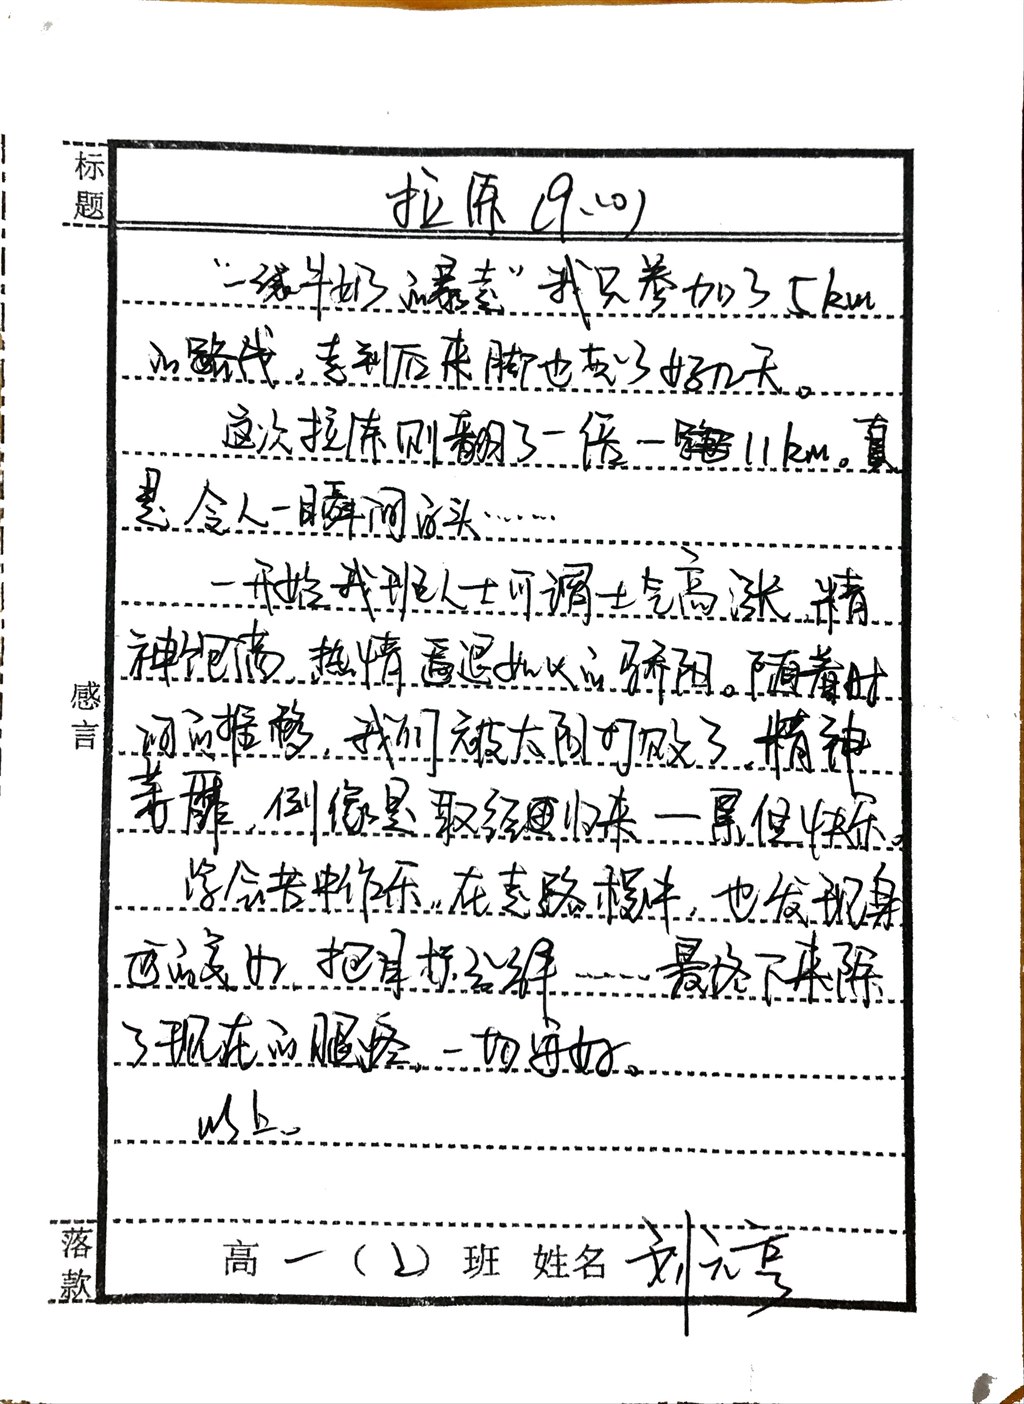 标题
拉练(9.20)
“一袋牛奶的暴走”我只参加了5km
的路线,走到后来脚也废了好几天。
这次拉练则翻了一倍—11km。真
是令人一瞬间白头……
一开始我班人士可谓士气高涨,精
神饱满,热情直逼如火的骄阳。随着时
间的推移,我们被太阳打败了,精神
萎靡,倒像是取经归来—累但快乐。
学会苦中作乐。在走路过程中,也发现身
边的美好,把目标分解……最终下来除
了现在的腿疼,一切安好。
以上。
感言
落款
高一(2)班 姓名 刘元亨